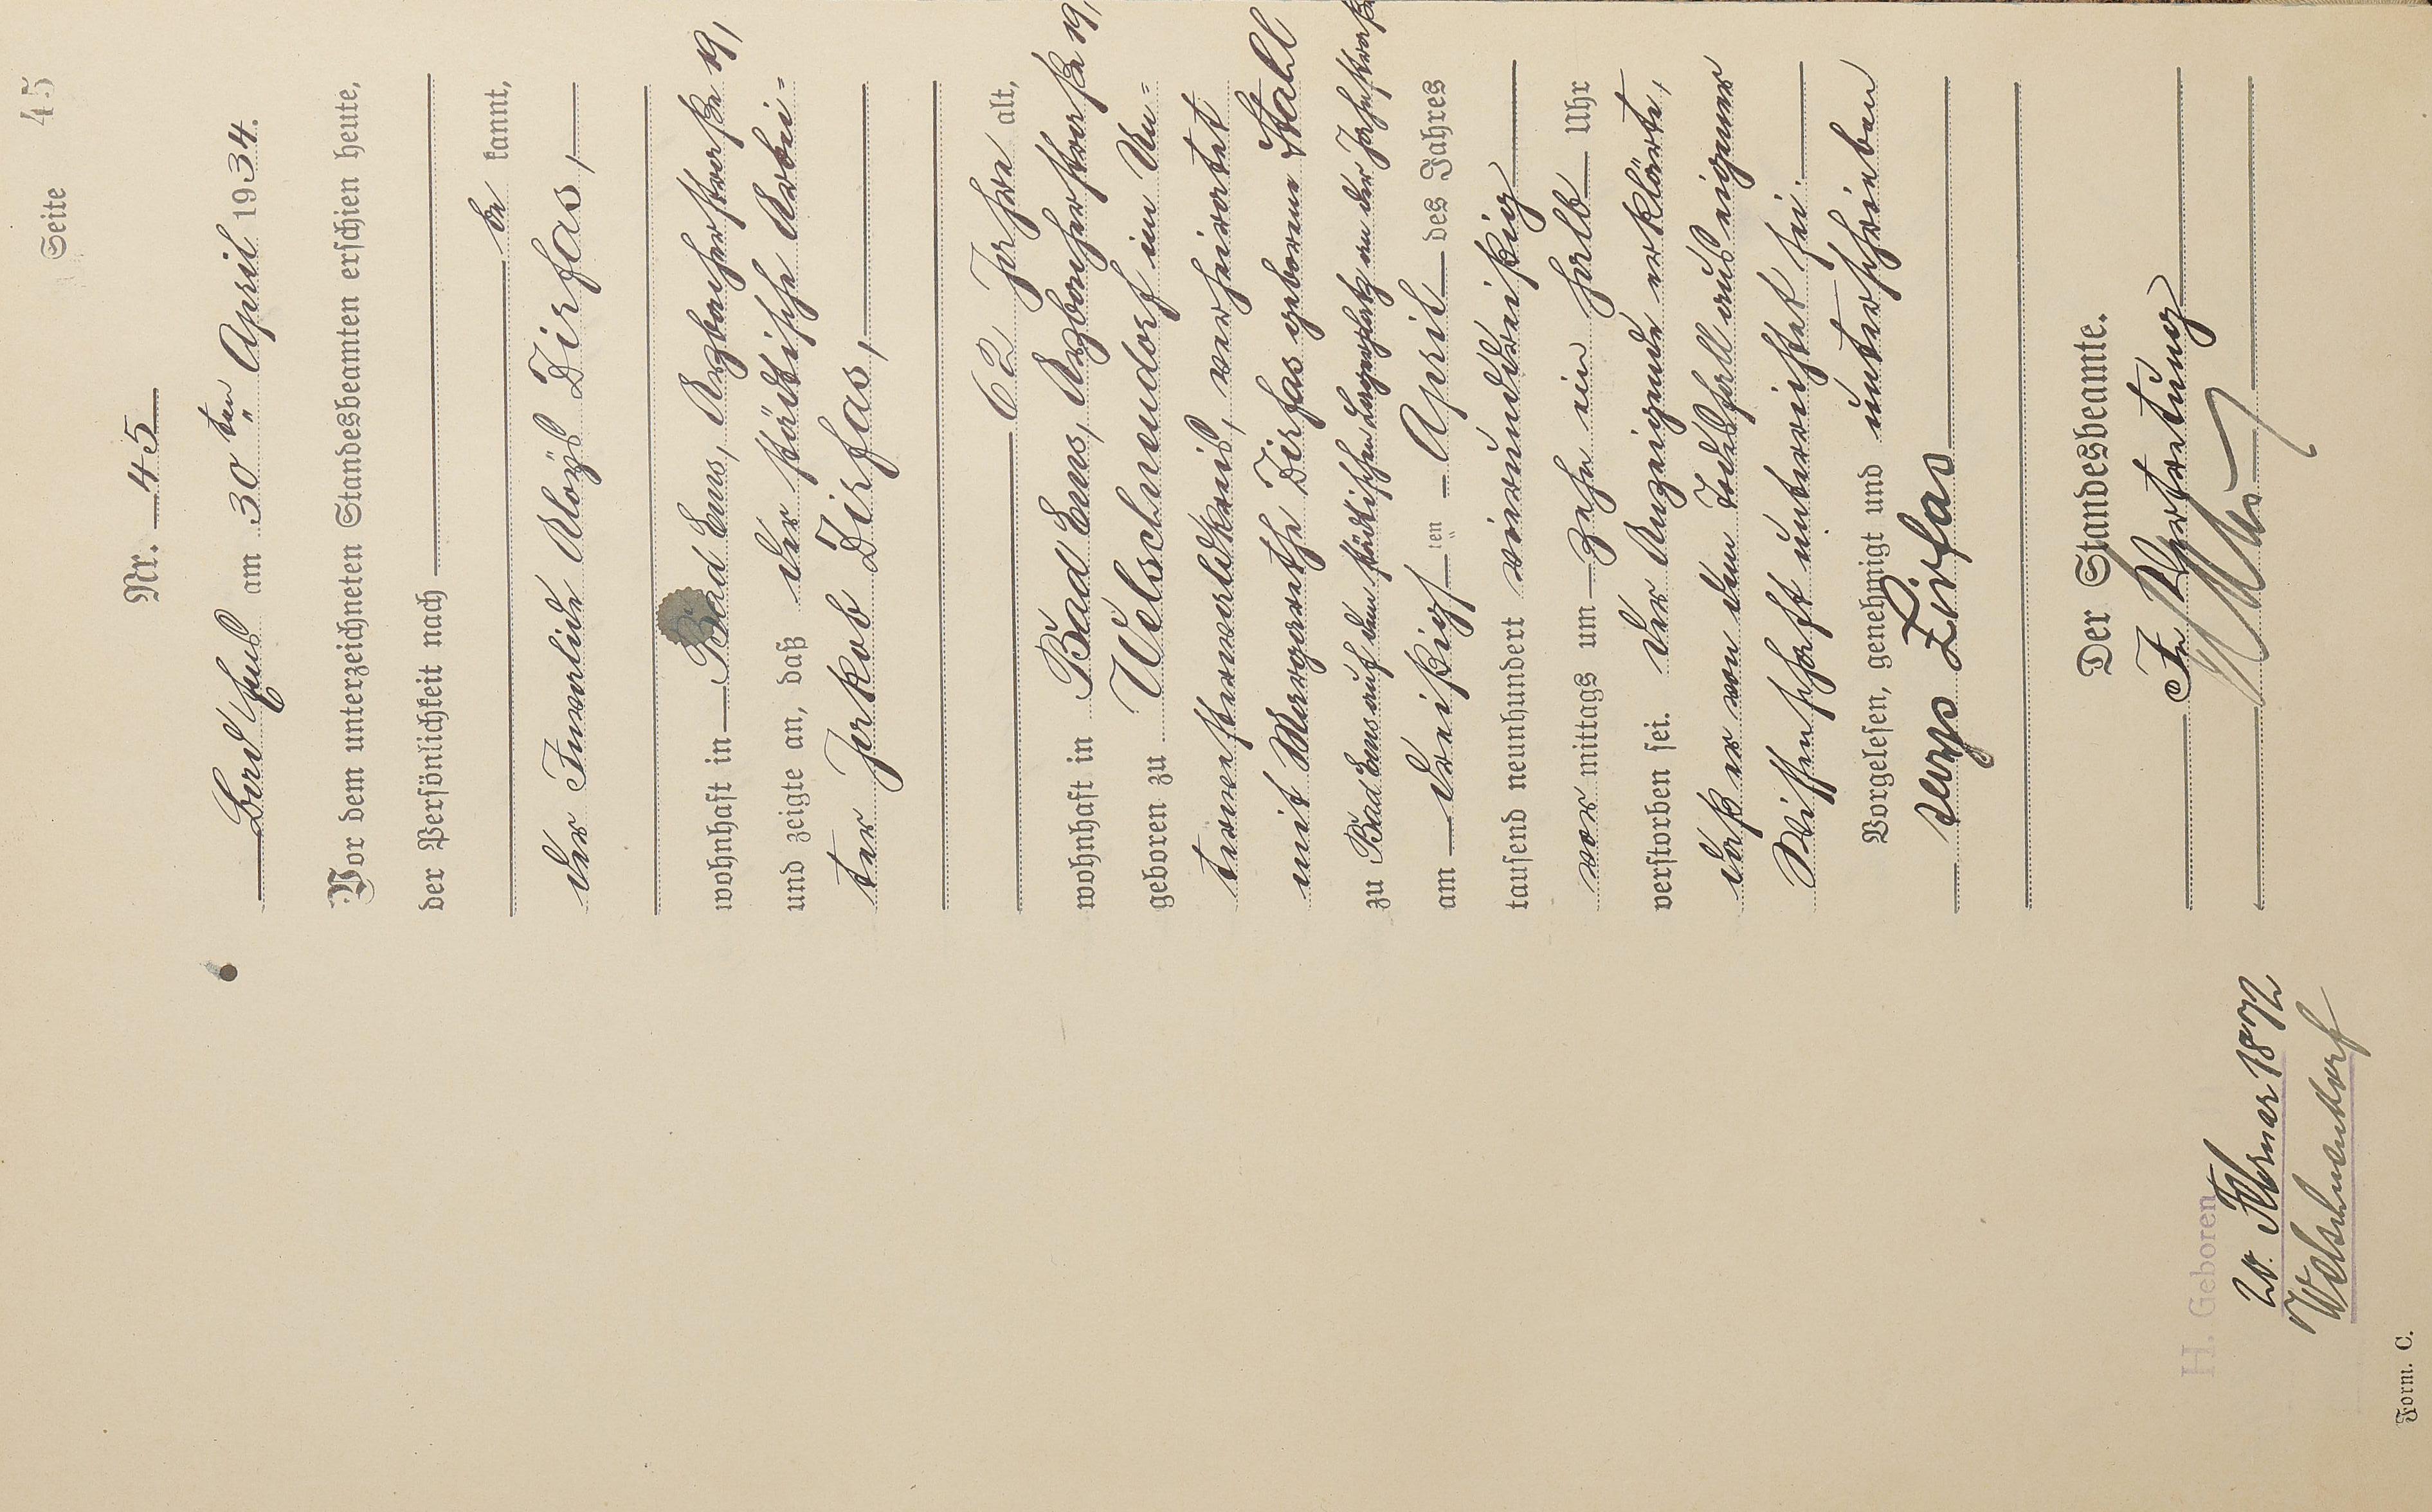 Seite 45
Nr. 45
Bad Ems am 30 ten April 1934.
Vor dem unterzeichneten Standesbeamten erschien heute,
der Persönlichkeit nach
be kannt,
der Invalide Aloys Zirfas,
wohnhaft in Bad Ems, Arzbacherstraße 19,
und zeigte an, daß der städtische Arbei-
ter Jakob Zirfas,
62 Jahre alt,
wohnhaft in Bad Ems, Arzbacherstraße 19,
geboren zu Welschneudorf im Un-
terwesterwaldkreis, verheiratet
mit Margarethe Zirfas geborene Stahl
zu Bad Ems auf dem städtischen Lagerplatz an der
am dreißigst ten April des Jahres
tausend neunhundert vierunddreißig
vor mittags um zehn ein halb Uhr
verstorben sei. Der Anzeigende erklärte,
daß er von dem Todesfall aus eigener
Wissenschaft unterrichtet sei.
Vorgelesen, genehmigt und unterschrieben
Aloys Zirfas
Der Standesbeamte.
In Vertretung
H. Geboren
20. Februar 1872
Welschneudorf
Form. C.